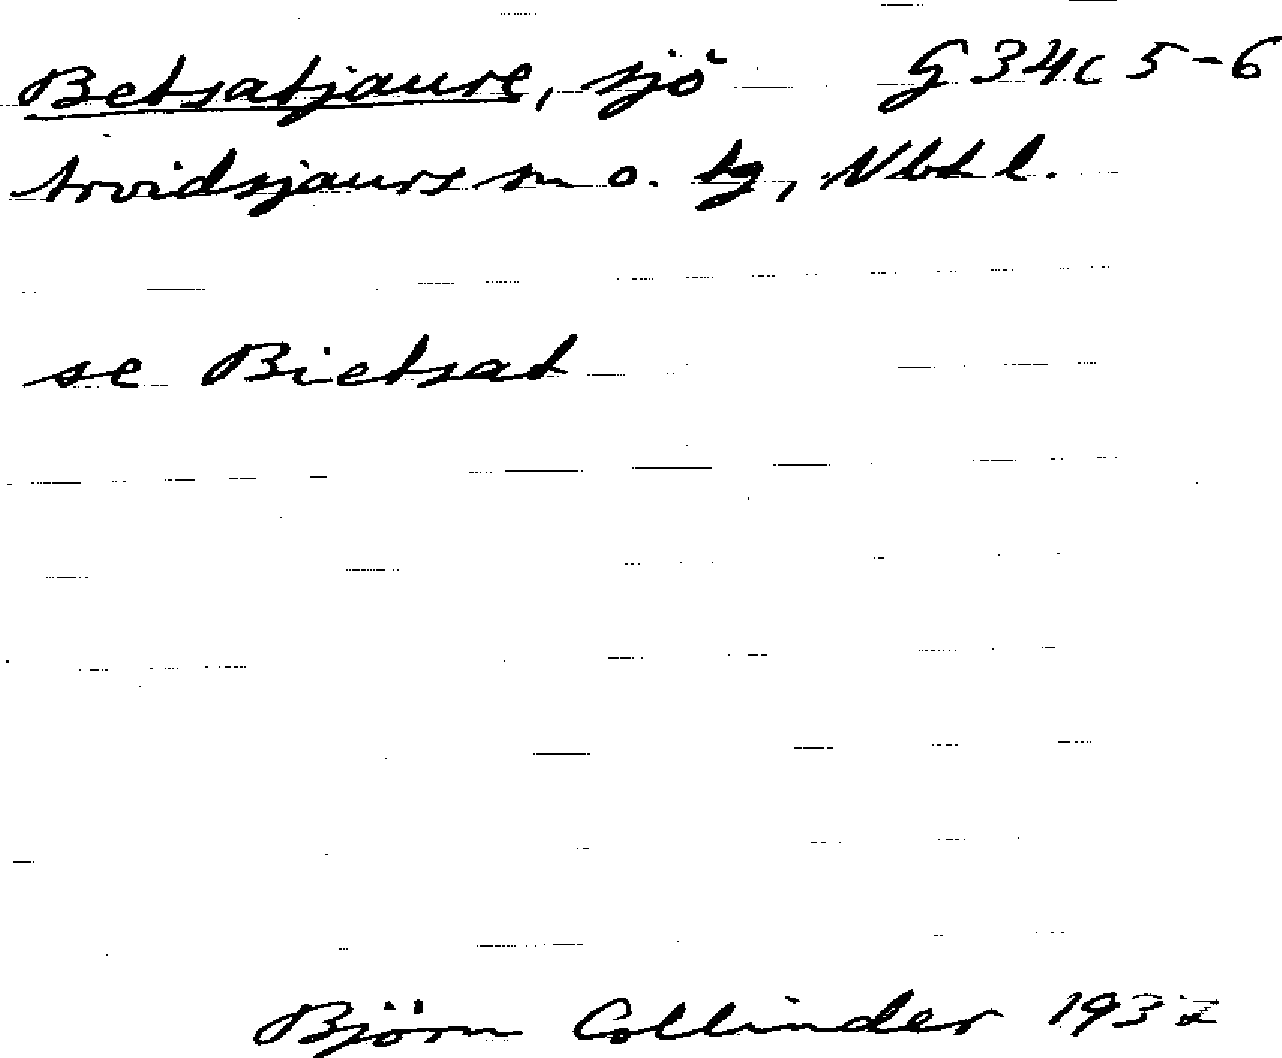 Betsatjaure, sjö G 34c 5-6
Arvidsjaurs sn o. tg, Nbtl.
se Bietsat
Björn Collinder 1932